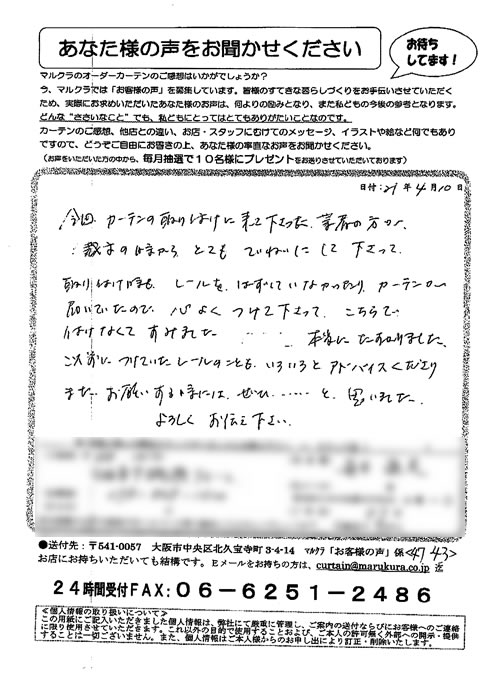 あなた様の声をお聞かせください
お待ち
してます!
マルクラのオーダーカーテンのご感想はいかがでしょうか?
今、マルクラでは「お客様の声」を募集しています。皆様のすてきな暮らしづくりをお手伝いさせていただく
ため、実際にお求めいただいたあなた様のお声は、何よりの励みとなり、また私どもの今後の参考となります。
どんな“ささいなこと”でも、私どもにとってはとてもありがたいことなのです。
カーテンのご感想、他店との違い、お店・スタッフにむけてのメッセージ、イラストや絵など何でもあり
ですので、どうぞご自由にお書きの上、あなた様の率直なお声をお聞かせください。
(お声をいただいた方の中から、毎月抽選で10名様にプレゼントをお送りさせていただいております)
日付:21年4月10日
今回 カーテンの取りはずしに来て下さった 業者の方が、
とても ていねいに して 下さって、
レールを はずして いなかったり、カーテンが
届いていたので 心よく つけて下さって、こちらで
つけなくて すみました …… 本当に たすかりました。
以前に つけていた レールのことも いろいろと アドバイスくださり
また お願いする時には ぜひ …… と 思いました。
よろしく お伝え下さい。
●送付先:〒541-0057 大阪市中央区北久宝寺町3-4-14 マルクラ「お客様の声」係 <4743>
お店にお持ちいただいても結構です。Eメールをお持ちの方は、curtain@marukura.co.jp 迄
24時間受付FAX:06-6251-2486
≪個人情報の取り扱いについて≫
この用紙にご記入いただきました個人情報は、弊社にて厳重に管理し、ご案内の送付ならびにお客様へのご連絡
に限り使用させていただきます。これ以外の目的で使用することおよび、ご本人の許可無く外部への開示・提供
することは一切ございません。また、個人情報はご本人様からのお申し出により訂正・削除いたします。